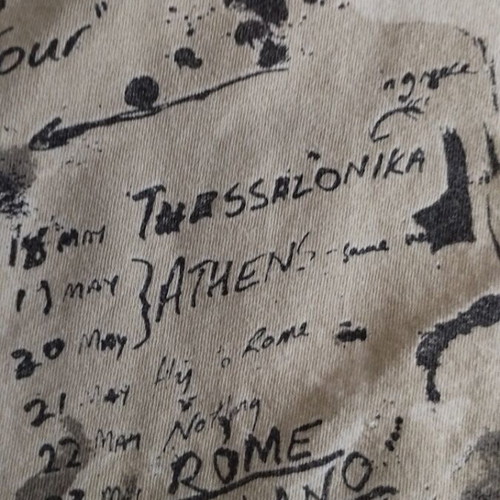 our"
18 MAY THESSALONIKA
19 MAY } ATHENS - same
20 MAY
21 MAY Fly to Rome
22 MAY Nothing
ROME